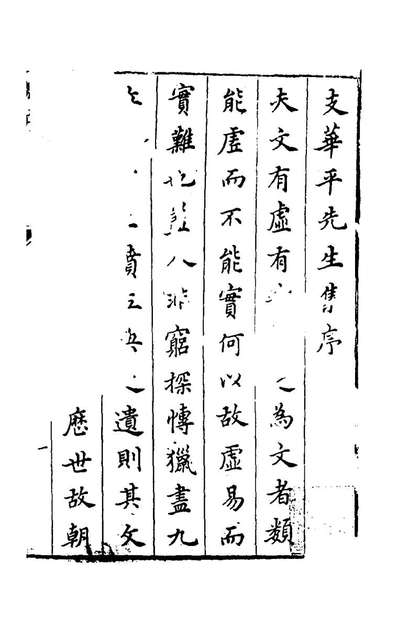 支華平先生集序
夫文有虛有為文者類
能虛而不能實何以故虛易而
實難也註人非窮探博獵盡九
墳之遺則其文
歷世故朝